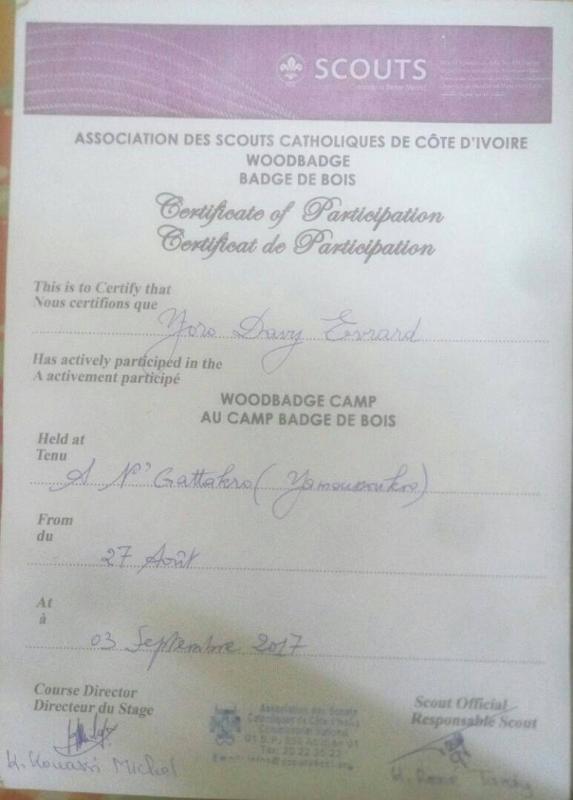 SCOUTS
ASSOCIATION DES SCOUTS CATHOLIQUES DE CÔTE D'IVOIRE
WOODBADGE
BADGE DE BOIS
Certificate of Participation
Certificat de Participation
This is to Certify that
Nous certifions que
Yoro Davy Evrard
Has actively participed in the
A activement participé
WOODBADGE CAMP
AU CAMP BADGE DE BOIS
Held at
Tenu
A N'Gattakro (Yamoussoukro)
From
du
27 Août
At
à
03 Septembre 2017
Course Director
Directeur du Stage
Scout Official
Responsable Scout
Association des Scouts
Catholiques de Côte d'Ivoire
Commissariat National
K. Kouassi Michel
K. René